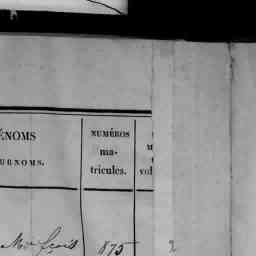 ÉNOMS
URNOMS.
NUMÉROS
ma-
tricules.
M
vol
875
2